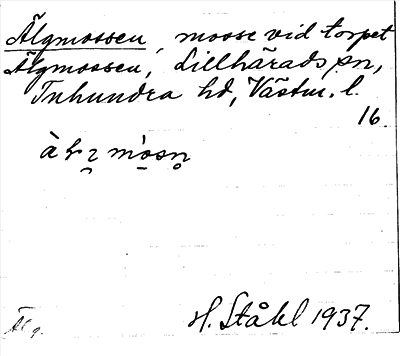 Älgmossen, mosse vid torpet
Älgmossen, Lillhärads sn,
Tuhundra hd, Västm. l.
16
Älg.
H. Ståhl 1937.